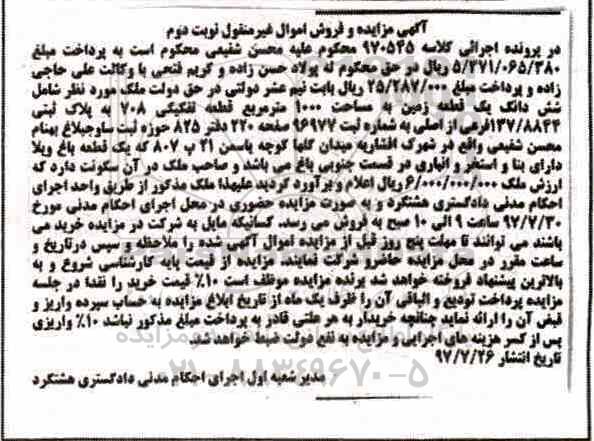 آگهی مزایده و فروش اموال غیرمنقول نوبت دوم
در پرونده اجرائی کلاسه ۹۷۰۵۴۵ محکوم علیه محسن شفیعی محکوم است به پرداخت مبلغ
۵/۳۷۱/۰۶۵/۳۸۰ ریال در حق محکوم له پولاد حسن زاده و کریم فتحی با وکالت علی حاجی
زاده و پرداخت مبلغ ۲۵/۲۸۷/۰۰۰ ریال بابت نیم عشر دولتی در حق دولت ملک مورد نظر شامل
شش دانگ یک قطعه زمین به مساحت ۱۰۰۰ مترمربع قطعه تفکیکی ۷۰۸ به پلاک ثبتی
۱۳۷/۸۸۴۴فرعی از اصلی به شماره ثبت ۹۶۹۷۷ صفحه ۲۲۰ دفتر ۸۲۵ حوزه ثبت ساوجبلاغ بهنام
محسن شفیعی واقع در شهرک افشاریه میدان گلها کوچه یاسمن ۲۱ پ ۸۰۷ که یک قطعه باغ ویلا
دارای بنا و استخر و انباری در قسمت جنوبی باغ می باشد و صاحب ملک در آن سکونت دارد که
ارزش ملک ۶/۰۰۰/۰۰۰/۰۰۰ ریال اعلام و برآورد گردید علیهذا ملک مذکور از طریق واحد اجرای
احکام مدنی دادگستری هشتگرد و به صورت مزایده حضوری در محل اجرای احکام مدنی مورخ
۹۷/۷/۳۰ ساعت ۹ الی ۱۰ صبح به فروش می رسد. کسانیکه مایل به شرکت در مزایده خرید می
باشند می توانند تا مهلت پنج روز قبل از مزایده اموال آگهی شده را ملاحظه و سپس درتاریخ و
ساعت مقرر در محل مزایده حاضرو شرکت نمایند. مزایده از قیمت پایه کارشناسی شروع و به
بالاترین پیشنهاد فروخته خواهد شد برنده مزایده موظف است ۱۰٪ قیمت خرید را نقدا در جلسه
مزایده پرداخت تودیع و الباقی آن را ظرف یک ماه از تاریخ ابلاغ مزایده به حساب سپرده واریز و
قبض آن را ارائه نماید چنانچه خریدار به هر علتی قادر به پرداخت مبلغ مذکور نباشد ۱۰٪ واریزی
پس از کسر هزینه های اجرایی و مزایده به نفع دولت ضبط خواهد شد.
تاریخ انتشار ۹۷/۷/۲۶
مدیر شعبه اول اجرای احکام مدنی دادگستری هشتگرد
۰۲۱-۸۸۳۴۹۶۷۰-۵